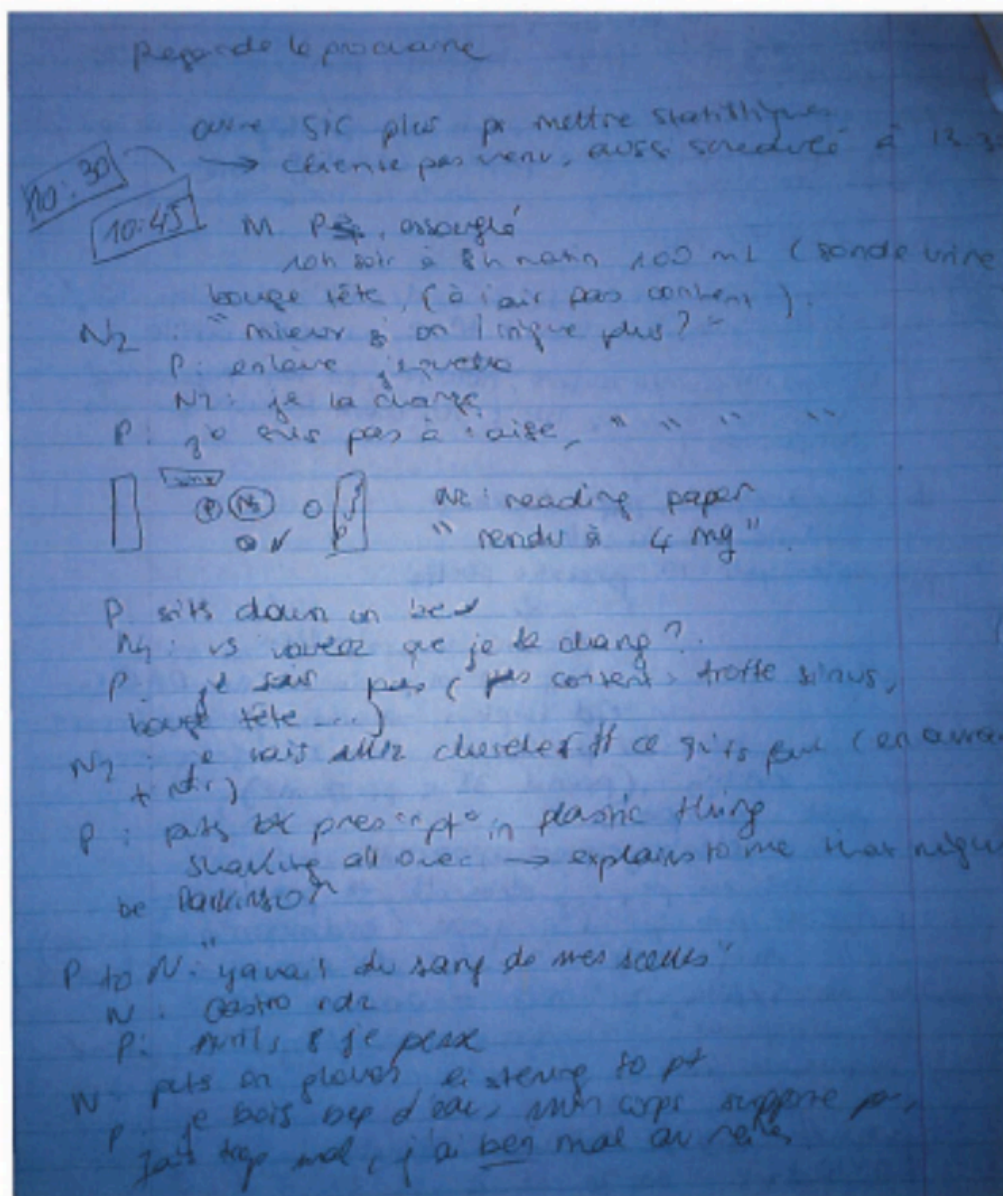 Regarde la prochaine
ouvre SIC plus pr mettre statistiques
10:30 → cliente pas venu, aussi scheduled à 13.3
10:45 M. P, essouflé
10h soir à 8h matin 100 mL (sonde urine
bouge tête, (à l'air pas content).
N2 : "mieux si on pique plus?"
P: enlève jaquette
N2: je la change
P: j'e suis pas à l'aise, " " " "
P N2
N2: reading paper
"rendu à 4 mg"
P sits down on bed
N2: vs voulez que je la change?
P: je sais pas (pas content, frotte sinus,
bouge tête ...)
N2: je vais chercher ce qu'is faut (en avra
P: puts prescript° in plastic thing
shaking all over → explains to me that migh
be Parkinson
P to N: "yavait du sang de mes scelles"
N: Gastro rdz
P: Avril, 8 je pense
N puts on gloves, listening to pt.
P: je bois bcp d'eau, mon corps suppore pa,
j'ai trop mal, j'ai ben mal au reins